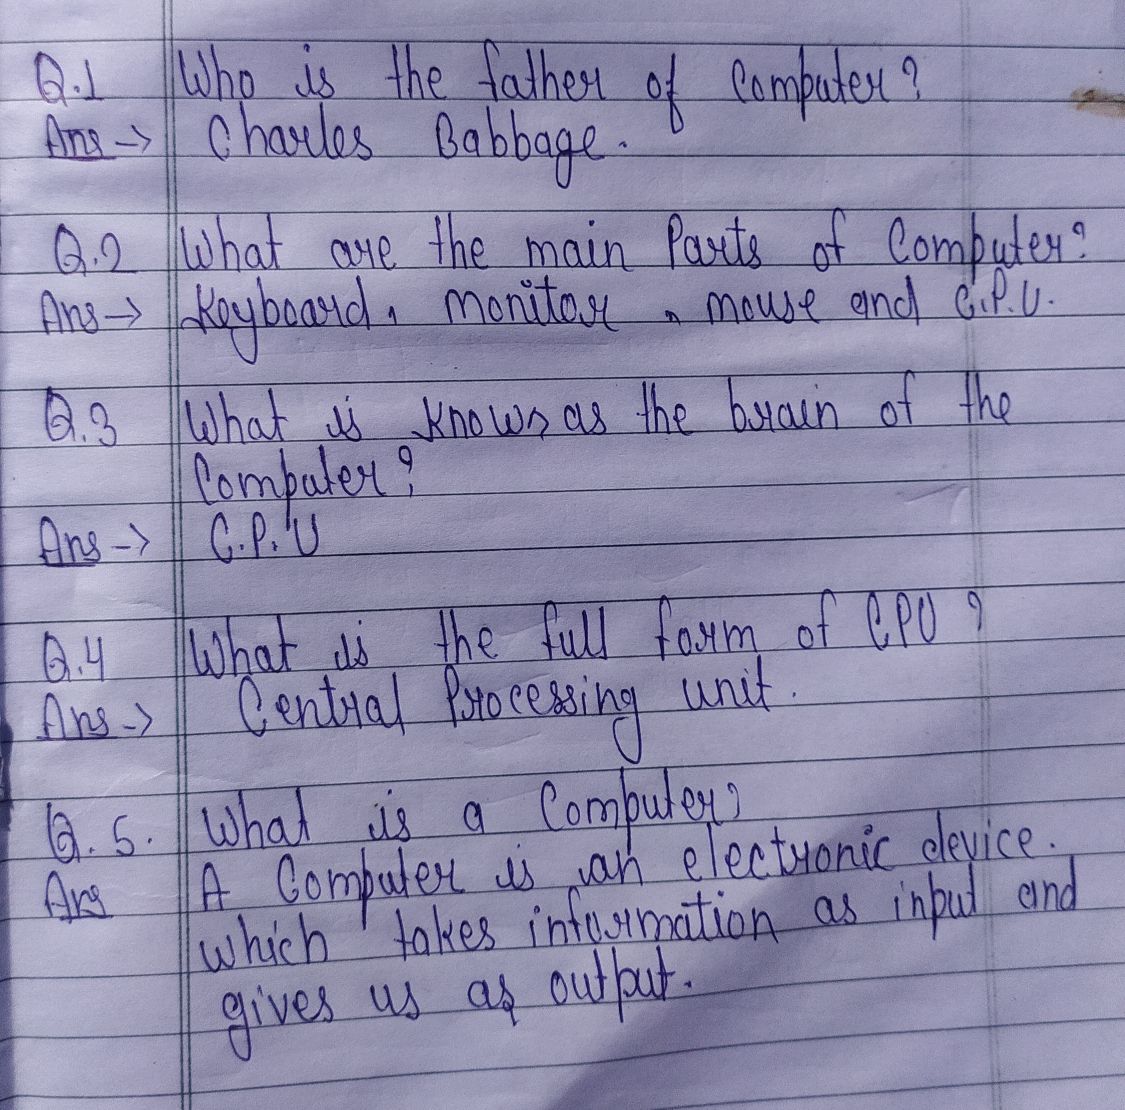 Q.1 Who is the father of Computer?
Ans → Charles Babbage.
Q.2 What are the main Parts of Computer?
Ans → Keyboard, monitor, mouse and C.P.U.
Q.3 What is known as the brain of the
Computer?
Ans → C.P.U
Q.4 What is the full form of CPU?
Ans → Central Processing unit.
Q.5. What is a Computer?
Ans A Computer is an electronic device.
which takes information as input and
gives us as output.